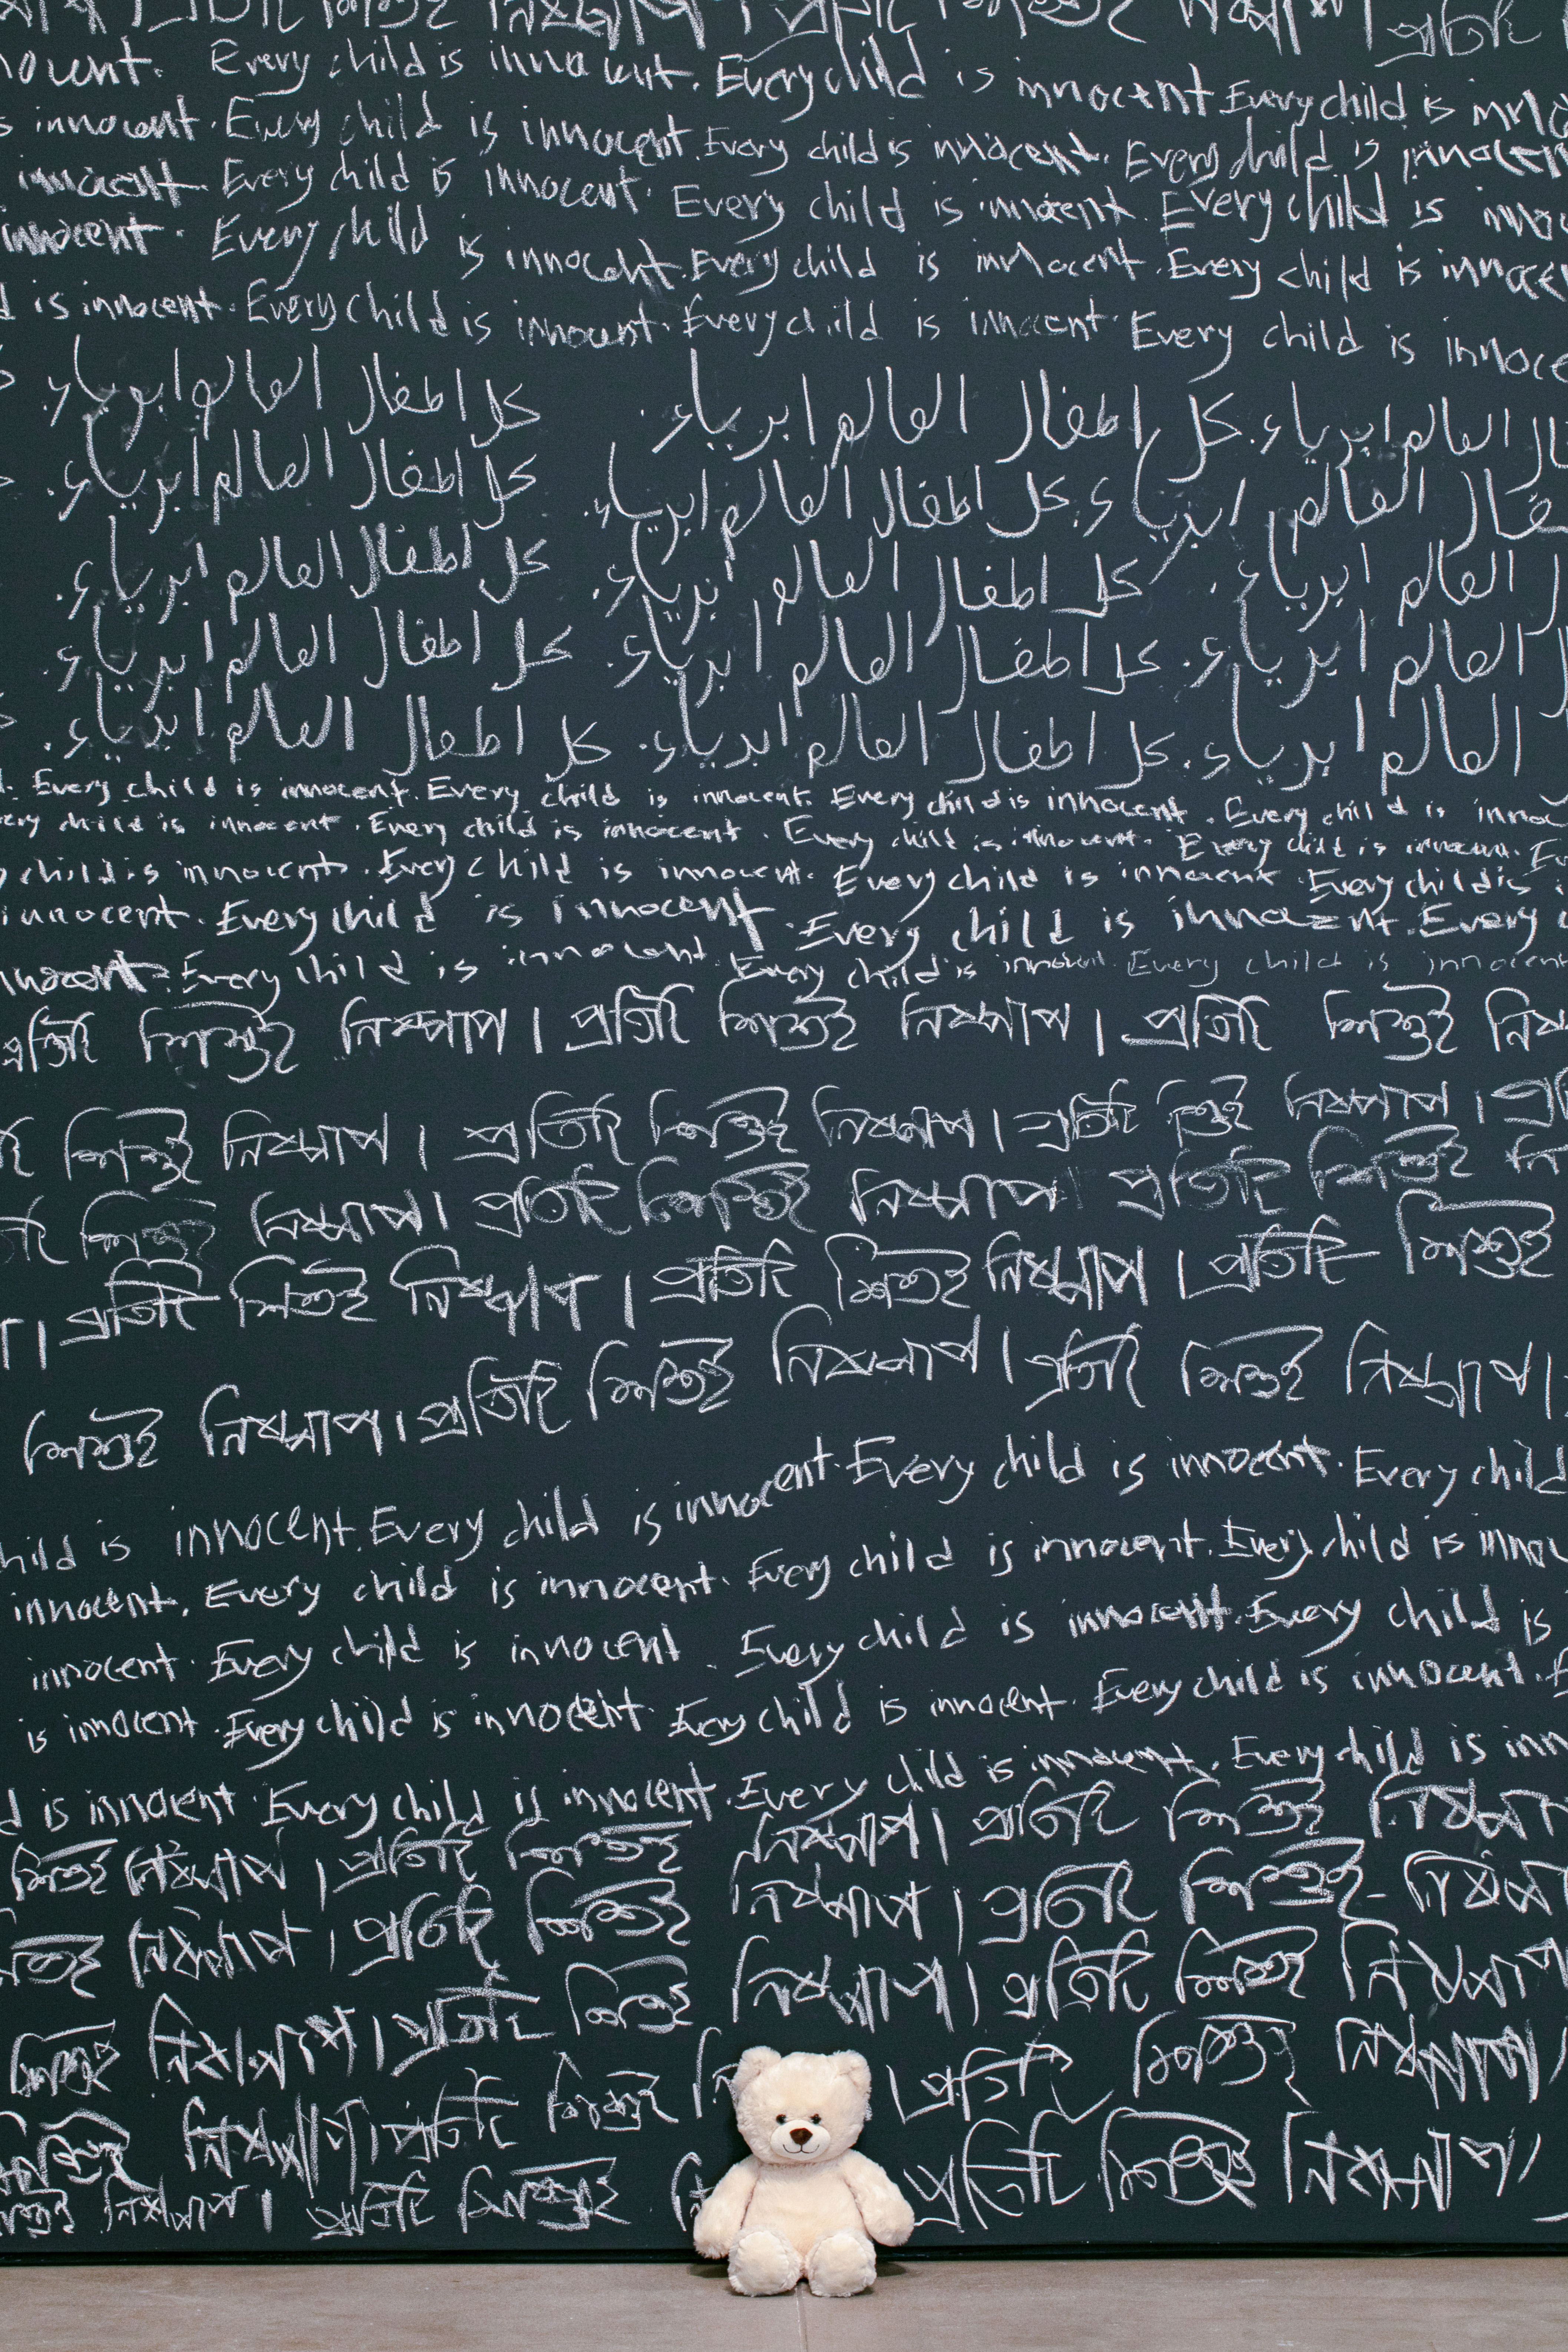 প্রতিটি
nocent. Every child is innocent. Every child is innocent Every child is inno
s innocent. Every child is innocent. Every child is innocent. Every child is innocen
innocent. Every child is innocent. Every child is innocent. Every child is inno
innocent. Every child is innocent. Every child is innocent. Every child is innocen
d is innocent. Every child is innocent. Every child is innocent. Every child is innoce
العالم ابرياء. كل اطفال العالم ابرياء. كل اطفال العالم ابرياء.
فال العالم ابرياء. كل اطفال العالم ابرياء. كل اطفال العالم ابرياء.
العالم ابرياء. كل اطفال العالم ابرياء. كل اطفال العالم ابرياء.
العالم ابرياء. كل اطفال العالم ابرياء. كل اطفال العالم ابرياء.
العالم ابرياء. كل اطفال العالم ابرياء. كل اطفال العالم ابرياء.
. Every child is innocent. Every child is innocent. Every child is innocent. Every child is inno
ery child is innocent. Every child is innocent. Every child is innocent. Every child is innocent. E
y child is innocent. Every child is innocent. Every child is innocent. Every child is
innocent. Every child is innocent. Every child is innocent. Every
innocent. Every child is innocent. Every child is innocent. Every child is innocent
প্রতিটি শিশুই নিষ্পাপ। প্রতিটি শিশুই নিষ্পাপ। প্রতিটি শিশুই নিষ্
টি শিশুই নিষ্পাপ। প্রতিটি শিশুই নিষ্পাপ। প্রতিটি শিশুই নিষ্পাপ। প্র
টি শিশুই নিষ্পাপ। প্রতিটি শিশুই নিষ্পাপ। প্রতিটি শিশুই নি
প। প্রতিটি শিশুই নিষ্পাপ। প্রতিটি শিশুই নিষ্পাপ। প্রতিটি শিশুই
শিশুই নিষ্পাপ। প্রতিটি শিশুই নিষ্পাপ। প্রতিটি শিশুই নিষ্পাপ।
hild is innocent. Every child is innocent. Every child is innocent. Every child
innocent. Every child is innocent. Every child is innocent. Every child is innoc
innocent. Every child is innocent. Every child is innocent. Every child is
is innocent. Every child is innocent. Every child is innocent. Every child is innocent. E
d is innocent. Every child is innocent. Every child is innocent. Every child is inn
শিশুই নিষ্পাপ। প্রতিটি শিশুই নিষ্পাপ। প্রতিটি শিশুই নিষ্পাপ
শিশুই নিষ্পাপ। প্রতিটি শিশুই নিষ্পাপ। প্রতিটি শিশুই নিষ্পাপ
শিশুই নিষ্পাপ। প্রতিটি শিশুই নিষ্পাপ। প্রতিটি শিশুই নিষ্পাপ
শিশুই নিষ্পাপ। প্রতিটি শিশুই নি। প্রতিটি শিশুই নিষ্পাপ।
শিশুই নিষ্পাপ। প্রতিটি শিশুই নি প্রতিটি শিশুই নিষ্পাপ।